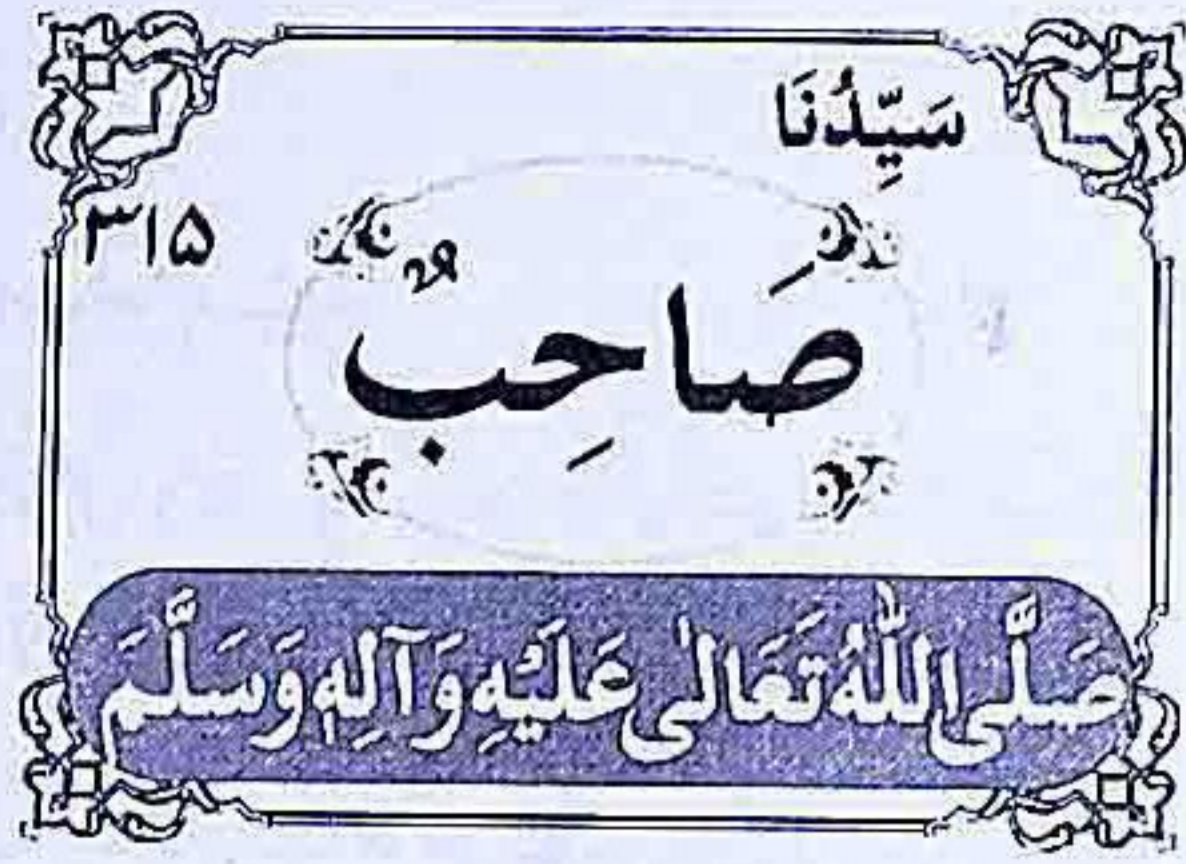 سَيِّدُنَا
۳۱۵
صَاحِبٌ
صَلَّى اللّٰهُ تَعَالٰى عَلَيْهِ وَآلِهٖ وَسَلَّمَ